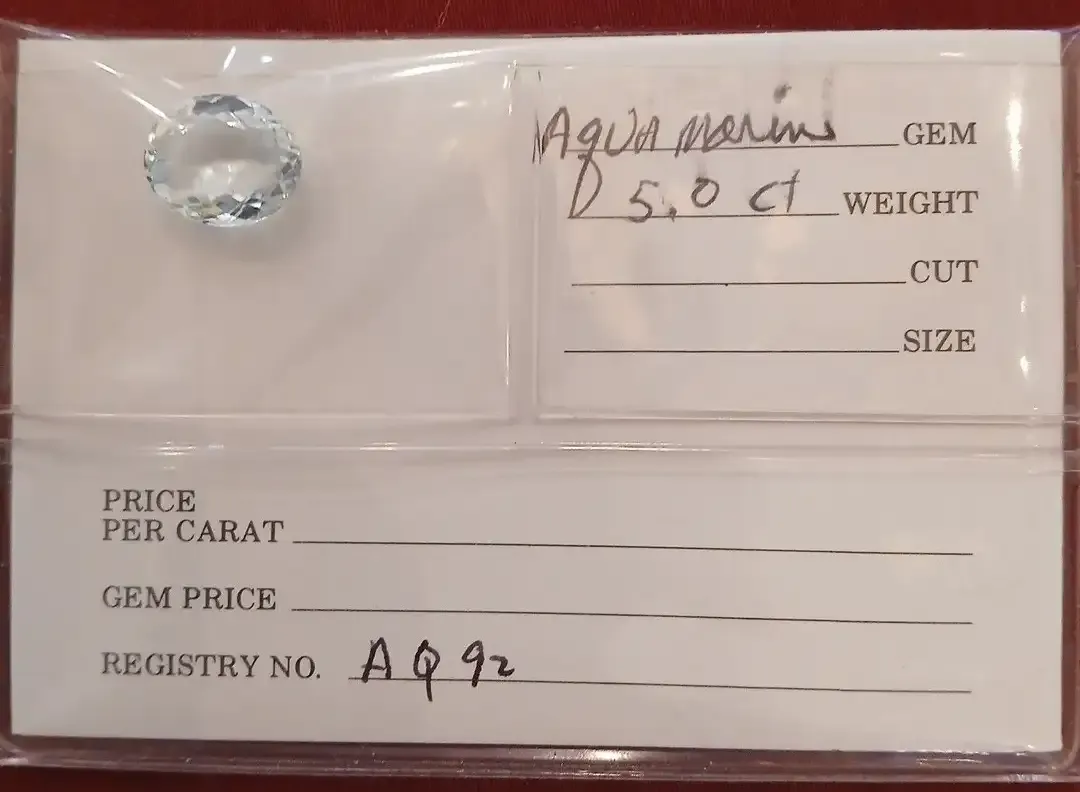 Aqua marine GEM
5.0 ct WEIGHT
CUT
SIZE
PRICE
PER CARAT
GEM PRICE
REGISTRY NO. AQ 92